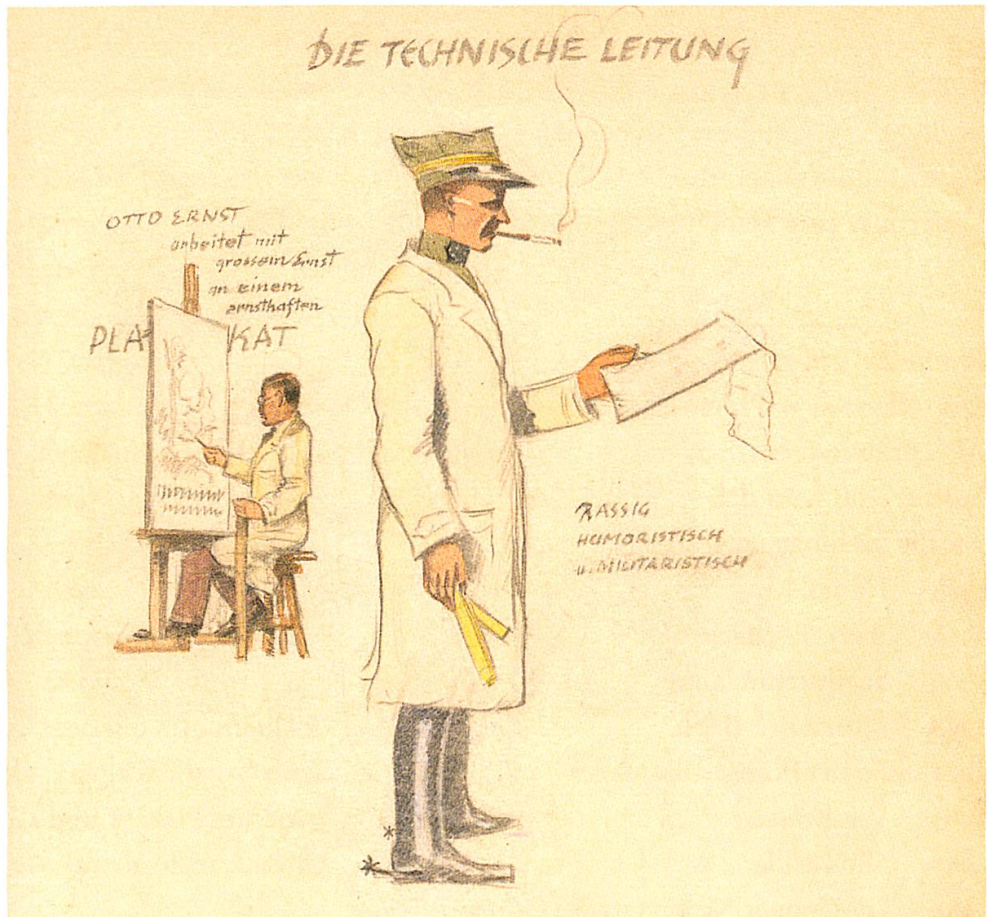 DIE TECHNISCHE LEITUNG
OTTO ERNST
arbeitet mit
grossem Ernst
an einem
ernsthaften
PLAKAT
RASSIG
HUMORISTISCH
u. MILITARISTISCH